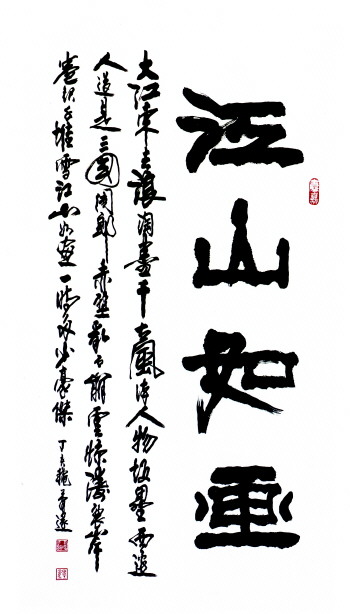 江山如畫
大江東去浪淘盡千古風流人物故壘西邊
人道是三國周郎赤壁亂石崩雲驚濤裂岸
卷起千堆雪江山如畫一時多少豪傑 丁亥